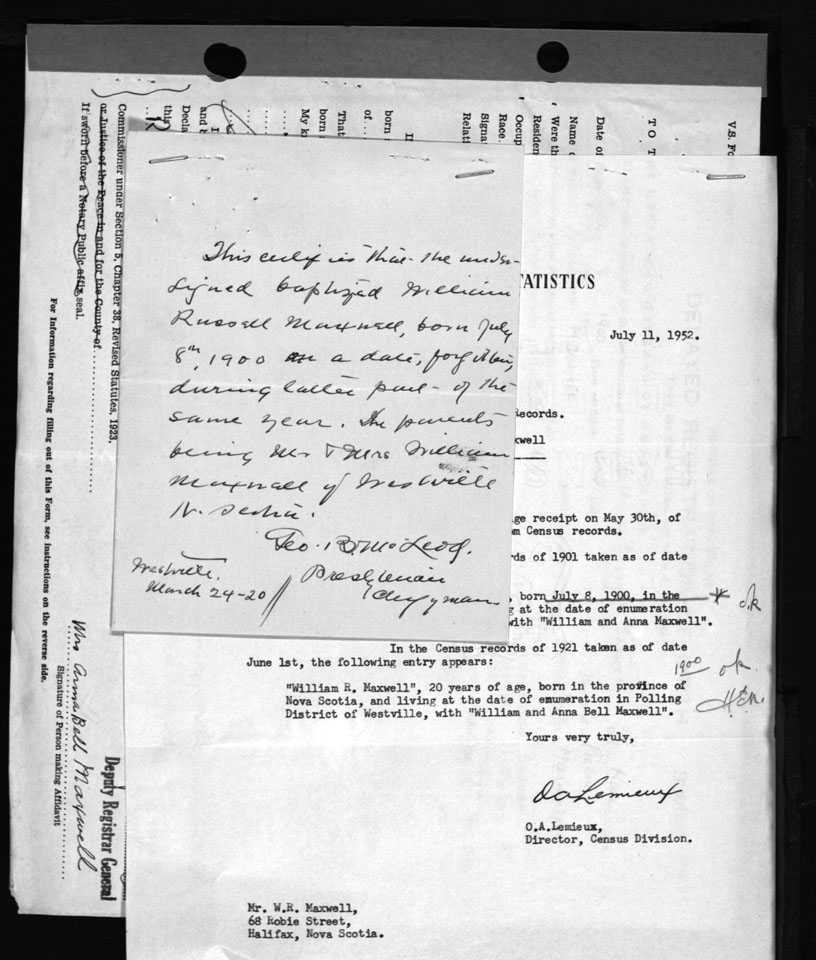 This certifies that the under-
signed baptized William
Russell Maxwell, born July
8th, 1900 on a date, forgotten,
during latter part of the
same year. The parents
being Mr & Mrs William
Maxwell of Westville
N. Scotia.
Geo. B. McLeod.
Presbyterian
Clergyman
Westville.
March 24-20
ATISTICS
July 11, 1952.
Records.
xwell
ge receipt on May 30th, of
om Census records.
rds of 1901 taken as of date
, born July 8, 1900, in the
g at the date of enumeration
with "William and Anna Maxwell".
ok
In the Census records of 1921 taken as of date
June 1st, the following entry appears:
1900 ok.
"William R. Maxwell", 20 years of age, born in the province of
Nova Scotia, and living at the date of enumeration in Polling
District of Westville, with "William and Anna Bell Maxwell".
Yours very truly,
O A Lemieux
O.A.Lemieux,
Director, Census Division.
Mr. W.R. Maxwell,
68 Robie Street,
Halifax, Nova Scotia.
V.S. Fo
TO T
Date of
Name o
Were th
Residen
Occup
Race
Signa
Relati
I
born
of
That
born
My k
I
and b
Decla
this
12
Commissioner under Section 5, Chapter 38, Revised Statutes, 1923.
or Justice of the Peace in and for the County of
If sworn before a Notary Public affix seal.
For Information regarding filling out of this Form, see instructions on the reverse side.
Mrs Anna Bell Maxwell
Signature of Person making Affidavit
Deputy Registrar General